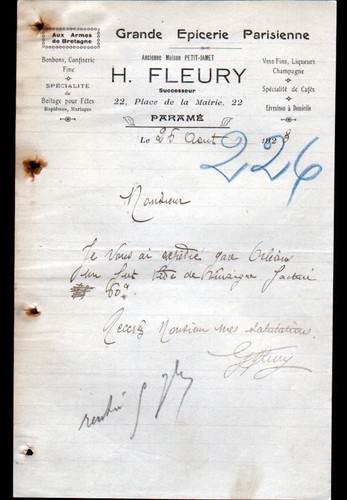 Aux Armes
de Bretagne
Grande Epicerie Parisienne
Ancienne Maison PETIT-JAMET
Bonbons, Confiserie
Fine
SPÉCIALITÉ
de
Boîtage pour Fêtes
Baptêmes, Mariages
H. FLEURY
Successeur
22, Place de la Mairie, 22
PARAMÉ
Vins Fins, Liqueurs
Champagne
Spécialité de Cafés
Livraison à Domicile
Le 25 Aout 1928
226
Monsieur
Je vous ai expédié gare Orléans
un fut vide de vinaigre facturé
60
Recevez Monsieur mes salutations
HFleury
rendu